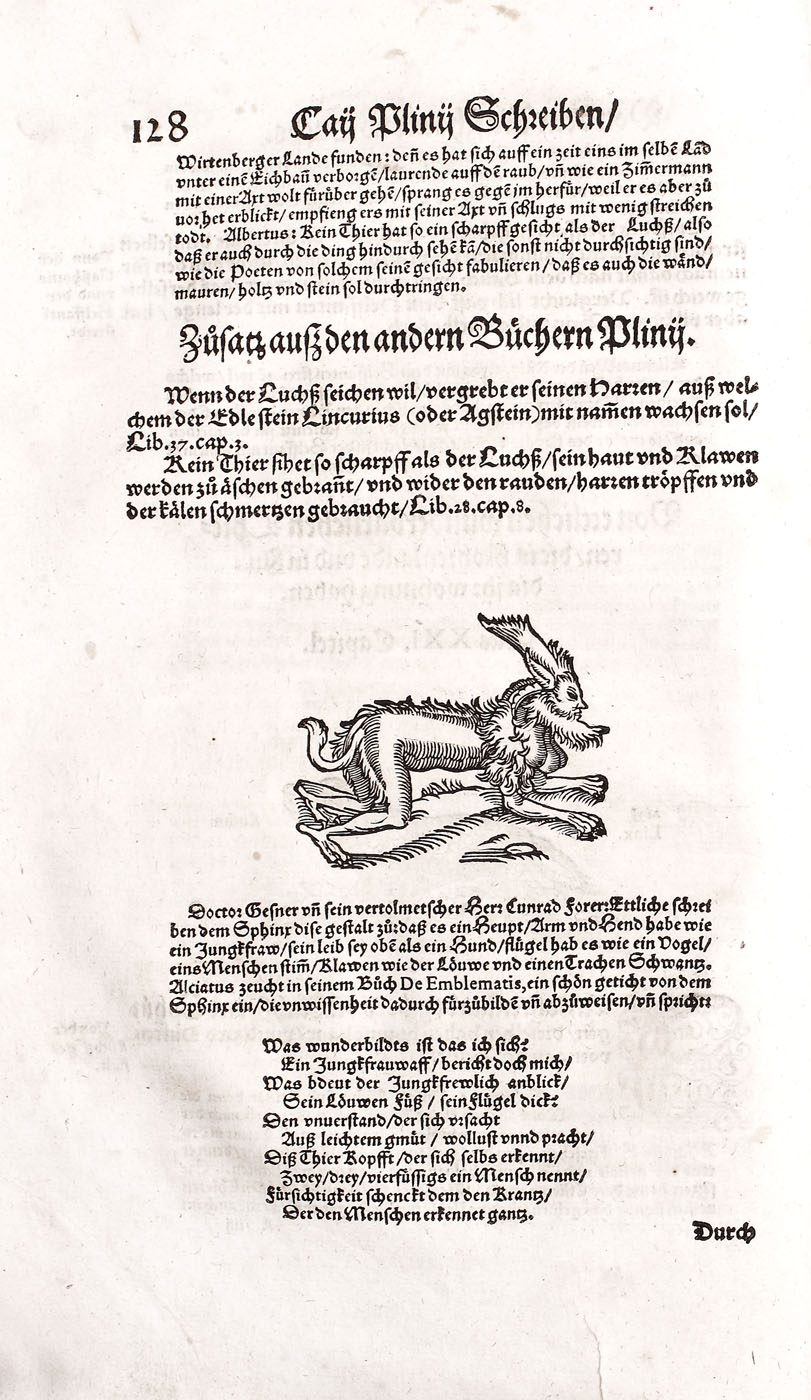 128 Caij Plinij Schreiben/
Wirtenberger Lande funden: deñ es hat sich auff ein zeit eins im selbẽ Lãd
vnter einẽ Eichbaũ verborgẽ/laurende auff dẽ raub/vñ wie ein Zim̃ermann
mit einer Axt wolt fürüber gehẽ/sprang es gegẽ jm herfür/weil er es aber zů
vor het erblickt/empfieng ers mit seiner Axt vñ schlugs mit wenig streichen
todt. Albertus: Kein Thier hat so ein scharpff gesicht als der Luchß/also
daß er auch durch die ding hindurch sehẽ kã/die sonst nicht durchsichtig sind/
wie die Poeten von solchem seinẽ gesicht fabulieren/daß es auch die wånd/
mauren/holtz vnd stein sol durchtringen.
Zůsatz auß den andern Büchern Plinij.
Wenn der Luchß seichen wil/vergrebt er seinen Harren/ auß wel-
chem der Edle stein Lincurius (oder Agstein) mit nam̃en wachsen sol/
Lib.37.cap.3.
Kein Thier sihet so scharpff als der Luchß/sein haut vnd Klawen
werden zů åschen gebrañt/ vnd wider den rauden/harren tröpffen vnd
der kålen schmertzen gebraucht/Lib.28.cap.8.
Doctor Gesner vñ sein vertolmetscher Herr Cunrad Forer: Ettliche schrei
ben dem Sphinx dise gestalt zů: daß es ein Heupt/Arm vnd Hend habe wie
ein Jungkfraw/sein leib sey obẽ als ein Hund/flügel hab es wie ein Vogel/
eins Menschen stim̃/Klawen wie der Löuwe vnd einen Trachen Schwantz.
Alciatus zeucht in seinem Bůch De Emblematis, ein schön geticht von dem
Sphinx ein/die vnwissenheit dadurch fürzůbildẽ vñ abzůweisen/vñ spricht:
Was wunderbildts ist das ich sich?
Ein Jungkfrauwaff/ bericht doch mich/
Was bdeut der Jungkfrewlich anblick/
Sein Löuwen Füß / sein Flügel dick?
Den vnuerstand/der sich vrsacht
Auß leichtem gmüt / wollust vnnd pracht/
Diß Thier Kopfft/der sich selbs erkennt/
Zwey/drey/vierfüssigs ein Mensch nennt/
Fürsichtigkeit schenckt dem den Krantz/
Der den Menschen erkennet gantz.
Durch